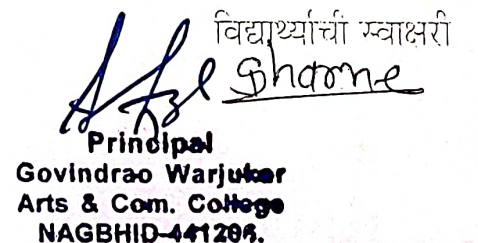 विद्यार्थ्यांची स्वाक्षरी
Principal
Govindrao Warjuker
Arts & Com. College
NAGBHID-441206.